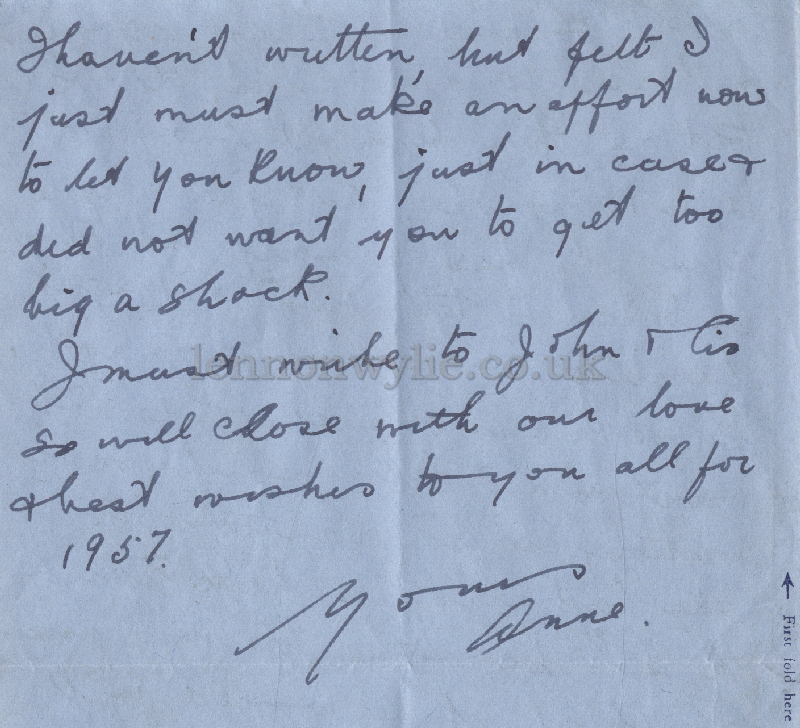 I haven't written, but felt I
just must make an effort now
to let you know, just in case &
did not want you to get too
big a shock.
I must write to John & Lis
so will close with our love
& best wishes to you all for
1957.
Yours
Anne.
lennonwylie.co.uk
First fold here